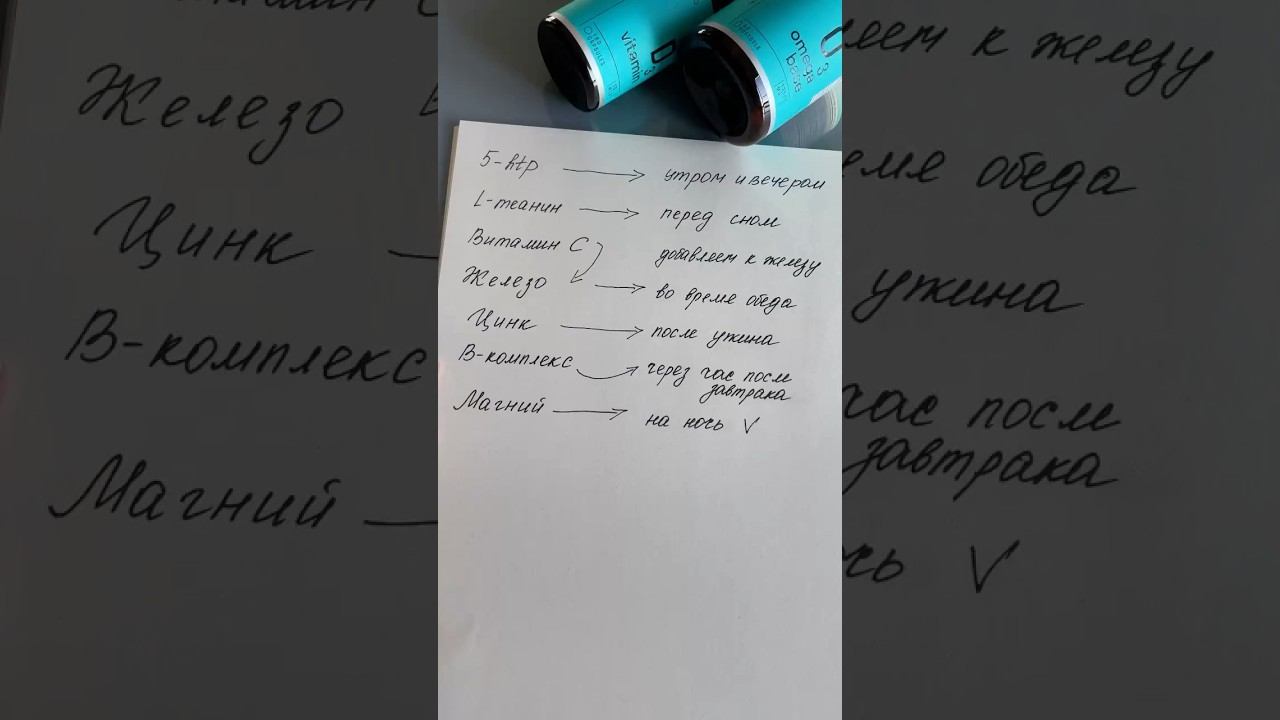 vitamin D3
omega base O3
5-htp → утром и вечером
L-теанин → перед сном
Витамин С добавляем к железу
Железо → во время обеда
Цинк → после ужина
В-комплекс → через час после
завтрака
Магний → на ночь V